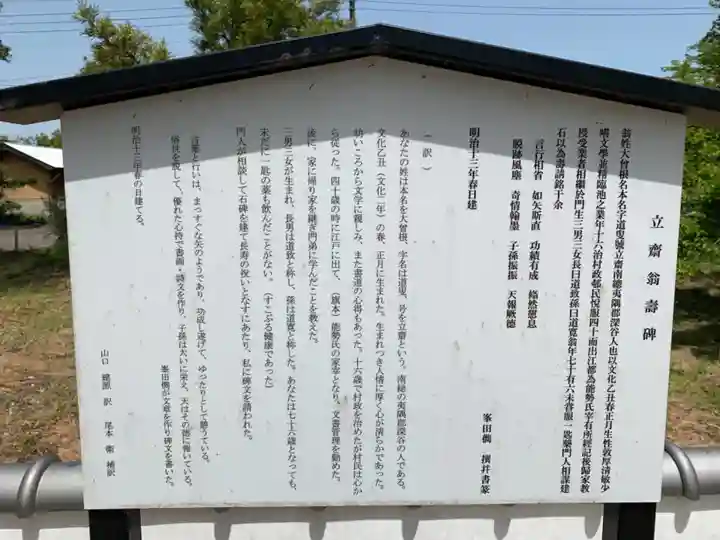 立齋翁壽碑
翁姓大曾根名本名字道叟號立齋南總夷隅郡深谷人也以文化乙丑春正月生性敦厚淸敏少
嗜文學兼精臨池之業年十六治村政邨民悅服四十而出江都為能勢氏宰有所經記後歸家教
授受業者相繼於門生三男三女長曰道致孫曰道寛翁年七十有六未嘗服一匙藥門人相謀建
石以為壽請銘于余
言行相省 如矢斯直 功績有成 翛然憩息
脱跡風塵 奇情翰墨 子孫振振 天報厥德
明治十三年春日建
峯田僩 撰幷書篆
(訳)
あなたの姓は本名を大曾根、字名は道叟、号を立齋という。南総の夷隅郡深谷の人である。
文化乙丑(文化二年)の春、正月に生まれた。生まれつき人情に厚く心が清らかであった。
幼いころから文学に親しみ、また書道の心得もあった。十六歳で村政を治めたが村民は心か
ら従った。四十歳の時に江戸に出て、(旗本)能勢氏の家宰となり、文書管理を勤めた。
後に、家に帰り家を継ぎ門弟に学んだことを教えた。
三男三女が生まれ、長男は道致と称し、孫は道寛と称した。あなたは七十六歳となっても、
未だに一匙の薬も飲んだことがない。(すこぶる健康であった)
門人が相談して石碑を建て長寿の祝いとなすにあたり、私に碑文を請われた。
言葉と行いは、まっすぐな矢のようであり、功成し遂げて、ゆったりとして憩うている。
俗世を脱して、優れた心持で書画・詩文を作り、子孫は大いに栄え、天はその徳に報いている。
明治十三年春の日建てる。
峯田僩が文章を作り碑文を書いた。
山口 建源 訳 尾本 衛 補訳